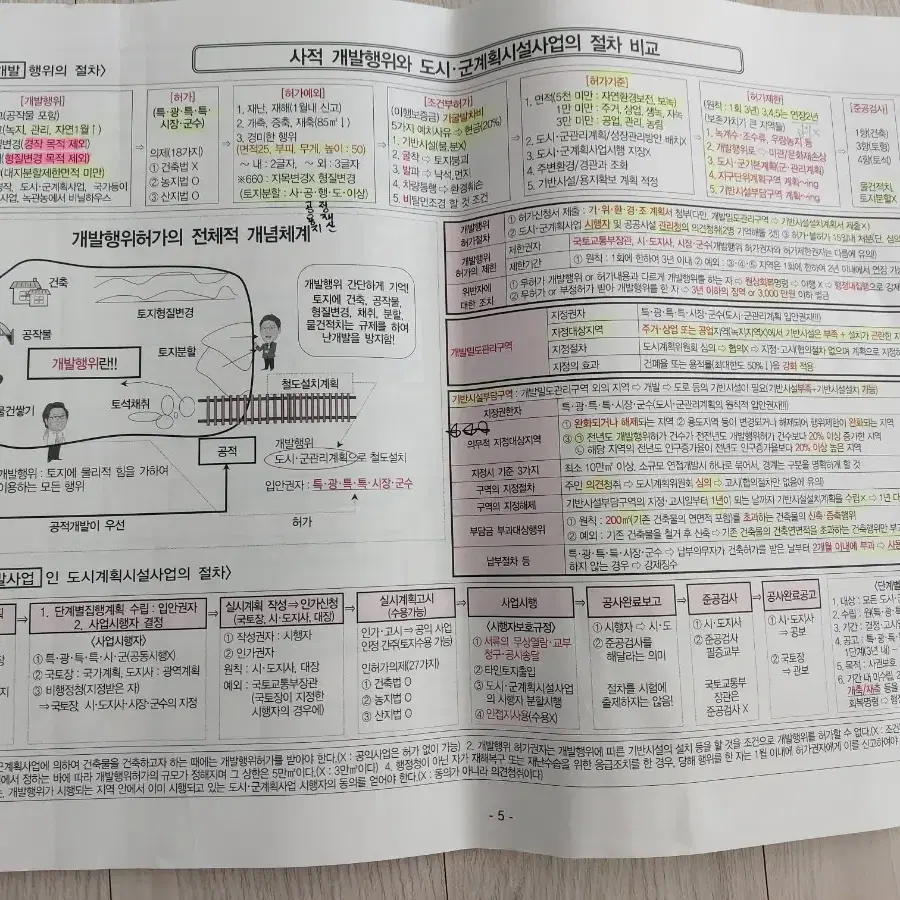 사적 개발행위와 도시·군계획시설사업의 절차 비교
개발 행위의 절차>
[개발행위]
(공작물 포함)
(녹지, 관리, 자연1월↓)
변경(경작 목적 제외)
(형질변경 목적 제외)
(대지분할제한면적 미만)
경작, 도시·군계획사업, 국가등이
사업, 녹관농에서 비닐하우스
[허가]
(특·광·특·특·
시장·군수)
의제(18가지)
① 건축법X
② 농지법○
③ 산지법○
[허가예외]
1. 재난, 재해(1월내 신고)
2. 개축, 증축, 재축(85㎡↓)
3. 경미한 행위
(면적25, 부피, 무게, 높이 : 50)
~ 내 : 2글자, ~ 외 : 3글자
※660 : 지목변경X 형질변경
(토지분할 : 사·공·행·도·이상)
[조건부허가]
(이행보증금) 기굴발차비
5가지 예치사유 ⇨ 현금(20%)
1. 기반시설(물,분X)
2. 굴착 ⇨ 토지붕괴
3. 발파 ⇨ 낙석,먼지
4. 차량통행 ⇨ 환경훼손
5. 비탈면조경 할 것 조건
[허가기준]
1. 면적(5천 미만 : 자연환경보전, 보녹)
1만 미만 : 주거, 상업, 생녹, 자녹
3만 미만 : 공업, 관리, 농림
2. 도시·군관리계획/성장관리방안 배치X
3. 도시·군계획사업시행 지장X
4. 주변환경/경관과 조화
5. 기반시설/용지확보 계획 적정
[허가제한]
(원칙 : 1회 3년) 3,4,5는 연장2년
(보존가치가 큰 지역들)
1. 녹계수·조수류, 우량농지 등
2. 개발행위로 ⇨ 미관/문화재손상
3. 도시·군기본계획(군·관리계획)
4. 지구단위계획구역 계획~ing
5. 기반시설부담구역 계획~ing
[준공검사]
1행(건축)
3행(토형)
4행(토석)
물건적치,
토지분할X
개발행위허가의 전체적 개념체계
건축
토지형질변경
공작물
개발행위란!!
토지분할
토석채취
물건쌓기
개발행위 간단하게 기억!
토지에 건축, 공작물,
형질변경, 채취, 분할,
물건적치는 규제를 하여
난개발을 방지함!
철도설치계획
공적
개발행위
도시·군관리계획으로 철도설치
입안권자 : 특·광·특·특·시장·군수
개발행위 : 토지에 물리적 힘을 가하여
이용하는 모든 행위
공적개발이 우선
허가
개발행위
허가절차
① 허가신청서 제출 : 기·위·환·경·조 계획서 첨부(다만, 개발밀도관리구역 ⇨ 기반시설설치계획서 제출X)
② 도시·군계획사업 시행자 및 공공시설 관리청의 의견청취(2명 기억해둘 것!) ③ 허가·불허가 15일내 처분(단, 심의
개발행위
허가의 제한
제한권자
국토교통부장관, 시·도지사, 시장·군수(개발행위 허가권자와 허가제한권자는 다름에 유의!)
제한기간
① 원칙 : 1회에 한하여 3년 이내 ② 예외 : ③·④·⑤ 지역은 1회에 한하여 2년 이내에서 연장 가능
위반자에
대한 조치
① 무허가 개발행위 or 허가내용과 다르게 개발행위를 하는 자 ⇨ 원상회복명령 ⇨ 이행 X ⇨ 행정대집행으로 강제
② 무허가 or 부정허가 받아 개발행위를 한 자 ⇨ 3년 이하의 징역 or 3,000 만원 이하 벌금
개발밀도관리구역
지정권자
특·광·특·특·시장·군수(도시·군관리계획 입안권자!!!)
지정대상지역
주거·상업 또는 공업지역(녹지지역X)에서 기반시설은 부족 + 설치는 곤란한 지
지정절차
도시계획위원회 심의 ⇨ 협의X ⇨ 지정·고시(협의절차 없으며 계획으로 지정하
지정의 효과
건폐율 또는 용적률(최대한도 50%↓)을 강화 적용
기반시설부담구역 : 개발밀도관리구역 외의 지역 ⇨ 개발 ⇨ 도로 등의 기반시설이 필요(기반시설부족+기반시설설치 가능)
지정권한자
특·광·특·특·시장·군수(도시·군관리계획의 원칙적 입안권자!!!)
의무적 지정대상지역
① 완화되거나 해제되는 지역 ② 용도지역 등이 변경되거나 해제되어 행위제한이 완화되는 지역
③ ㉠ 전년도 개발행위허가 건수가 전전년도 개발행위허가 건수보다 20% 이상 증가한 지역
㉡ 해당 지역의 전년도 인구증가율이 전년도 인구증가율보다 20% 이상 높은 지역
지정시 기준 3가지
최소 10만㎡ 이상, 소규모 연접개발시 하나로 묶어서, 경계는 구분을 명확하게 할 것
구역의 지정절차
주민 의견청취 ⇨ 도시계획위원회 심의 ⇨ 고시(협의절차만 없음에 유의)
구역의 지정해제
기반시설부담구역의 지정·고시일부터 1년이 되는 날까지 기반시설설치계획을 수립X ⇨ 1년 다
부담금 부과대상행위
① 원칙 : 200㎡(기존 건축물의 연면적 포함)를 초과하는 건축물의 신축·증축행위
② 예외 : 기존 건축물을 철거 후 신축 ⇨ 기존 건축물의 건축연면적을 초과하는 건축행위만 부고
납부절차 등
특·광·특·특·시장·군수 ⇨ 납부의무자가 건축허가를 받은 날부터 2개월 이내에 부과 ⇨ 사용
하지 않는 경우 ⇨ 강제징수
발사업 인 도시계획시설사업의 절차>
1. 단계별집행계획 수립 : 입안권자
2. 사업시행자 결정
<사업시행자>
① 특·광·특·특·시·군(공동시행X)
② 국토장 : 국가계획, 도지사 : 광역계획
③ 비행정청(지정받은 자)
⇨ 국토장, 시·도지사·시장·군수의 지정
실시계획 작성 ⇨ 인가신청
(국토장, 시·도지사, 대장)
① 작성권자 : 시행자
② 인가권자
원칙 : 시·도지사, 대장
예외 : 국토교통부장관
(국토장이 지정한
시행자의 경우에)
실시계획고시
(수용가능)
인가·고시 ⇨ 공익 사업
인정 간주(토지수용 가능)
인허가의제(27가지)
① 건축법 O
② 농지법 O
③ 산지법 O
사업시행
<시행자보호규정>
① 서류의 무상열람·교부
청구·공시송달
② 타인토지출입
③ 도시·군계획시설사업
의 시행자 분할시행
④ 인접지사용(수용X)
공사완료보고
① 시행자 ⇨ 시·도
② 준공검사를
해달라는 의미
절차를 시험에
출제하지는 않음!
준공검사
① 시·도지사
② 준공검사
필증교부
국토교통부
장관은
준공검사 X
공사완료공고
① 시·도지사
⇨ 공보
② 국토장
⇨ 관보
단계별
1. 대상 : 모든 도시·군
2. 수립 : 원(특·광·특
3. 기간 : 결정·고시일
4. 공고 : 특·광·특·특
1단계(3년 내) ~
5. 목적 : 사권보호
6. 기간 내 미수립, 2
개축/재축 등을
회복명령 ⇨ 행정
군계획사업에 의하여 건축물을 건축하고자 하는 때에는 개발행위허가를 받아야 한다.(X : 공익사업은 허가 없이 가능) 2. 개발행위 허가권자는 개발행위에 따른 기반시설의 설치 등을 할 것을 조건으로 개발행위를 허가할 수 없다.(X : 조건
에서 정하는 바에 따라 개발행위허가의 규모가 정해지며 그 상한은 5만㎡이다.(X : 3만㎡이다) 4. 행정청이 아닌 자가 재해복구 또는 재난수습을 위한 응급조치를 한 경우, 당해 행위를 한 자는 1월 이내에 허가권자에게 이를 신고하여야
. 개발행위가 시행되는 지역 안에서 이미 시행되고 있는 도시·군계획사업 시행자의 동의를 얻어야 한다.(X : 동의가 아니라 의견청취이다)
- 5 -